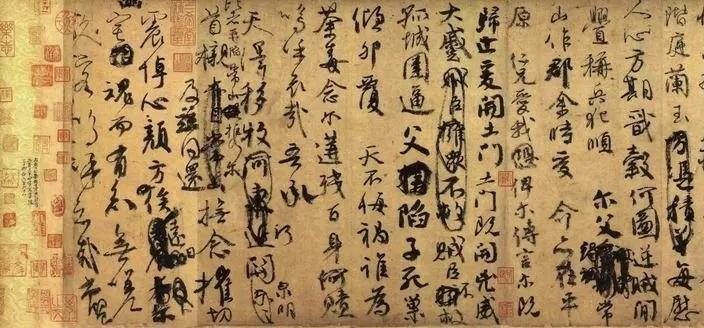 階庭蘭玉方憑積善每慰
人心方期戩穀何圖逆賊間
釁稱兵犯順爾父常
山作郡余時受命亦在平
原仁兄愛我俾爾傳言爾既
歸止爰開土門土門既開凶威
大蹙賊臣擁眾不救賊臣不救
孤城圍逼父陷子死巢
傾卵覆天不悔禍誰為
荼毒念爾遘殘百身何贖
嗚呼哀哉吾承
天澤移牧河關泉明
比者再陷常山攜爾
首櫬及茲同還撫念摧切
震悼心顏方俟遠日
宅魂而有知無嗟
久客嗚呼哀哉尚饗